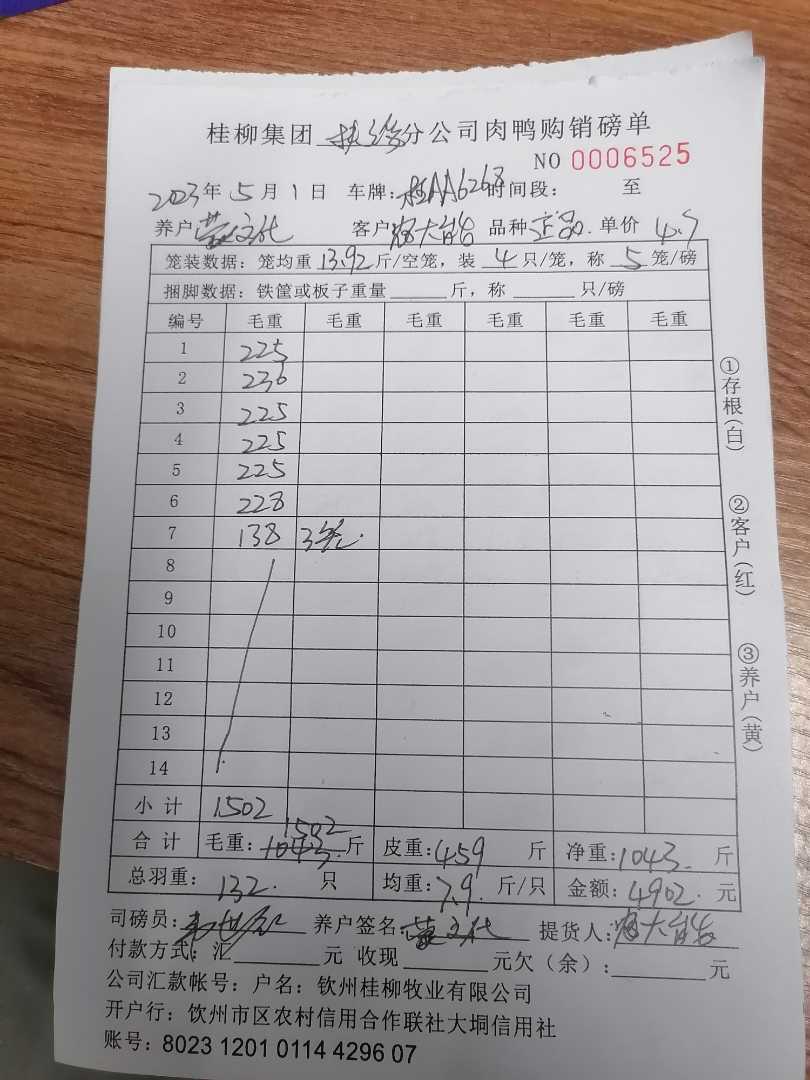 桂柳集团 分公司肉鸭购销磅单
NO 0006525
2023年5月1日 车牌:桂AA6268 时间段: 至
养户 客户 大 品种 正品. 单价 4.7
笼装数据: 笼均重 13.92 斤/空笼, 装 4 只/笼, 称 5 笼/磅
捆脚数据: 铁筐或板子重量 斤, 称 只/磅
编号 毛重 毛重 毛重 毛重 毛重 毛重
1 225
2 236
3 225
4 225
5 225
6 228
7 138 3笼.
8
9
10
11
12
13
14
小计 1502
1502
合计 毛重: 1043. 斤 皮重: 459 斤 净重: 1043. 斤
总羽重: 132. 只 均重: 7.9. 斤/只 金额: 4902. 元
司磅员: 养户签名: 提货人: 大
付款方式: 汇 元 收现 元欠(余): 元
公司汇款帐号: 户名: 钦州桂柳牧业有限公司
开户行: 饮州市区农村信用合作联社大垌信用社
账号: 8023 1201 0114 4296 07
①存根(白)
②客户(红)
③养户(黄)